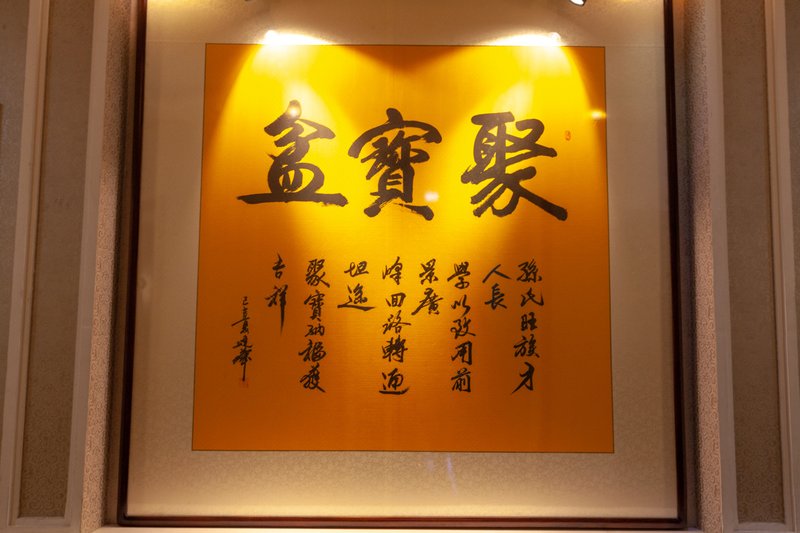 聚寶盆
孫氏旺族才
人長
學以致用前
景廣
峰回路轉通
坦途
聚寶納福獲
吉祥